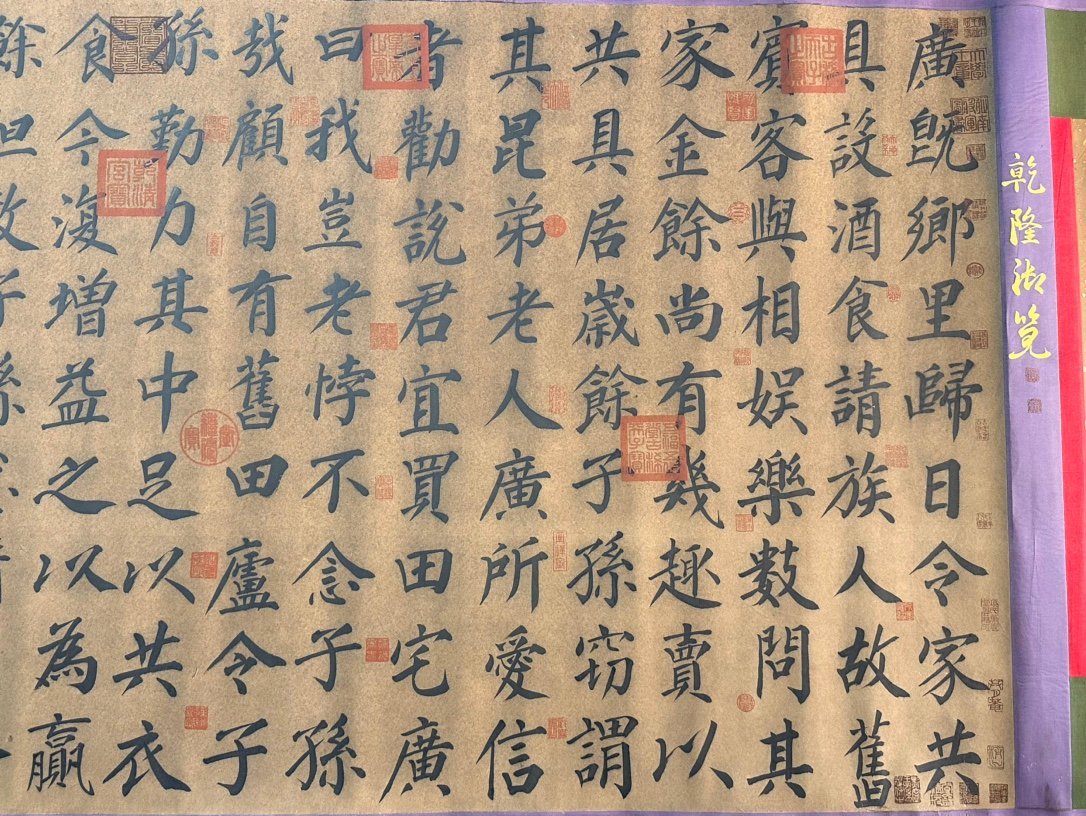 乾隆御览
廣既鄉里歸日令家共
具設酒食請族人故舊
賓客與相娱樂數問其
家金餘尚有幾趣賣以
共具居歲餘子孫窃謂
其昆弟老人廣所愛信
者勸說君宜買田宅廣
曰我豈老悖不念子孫
哉顧自有舊田廬令子
孫勤力其中足以共衣
食今復增益之以為贏
餘但教子孫
乾清宮寶